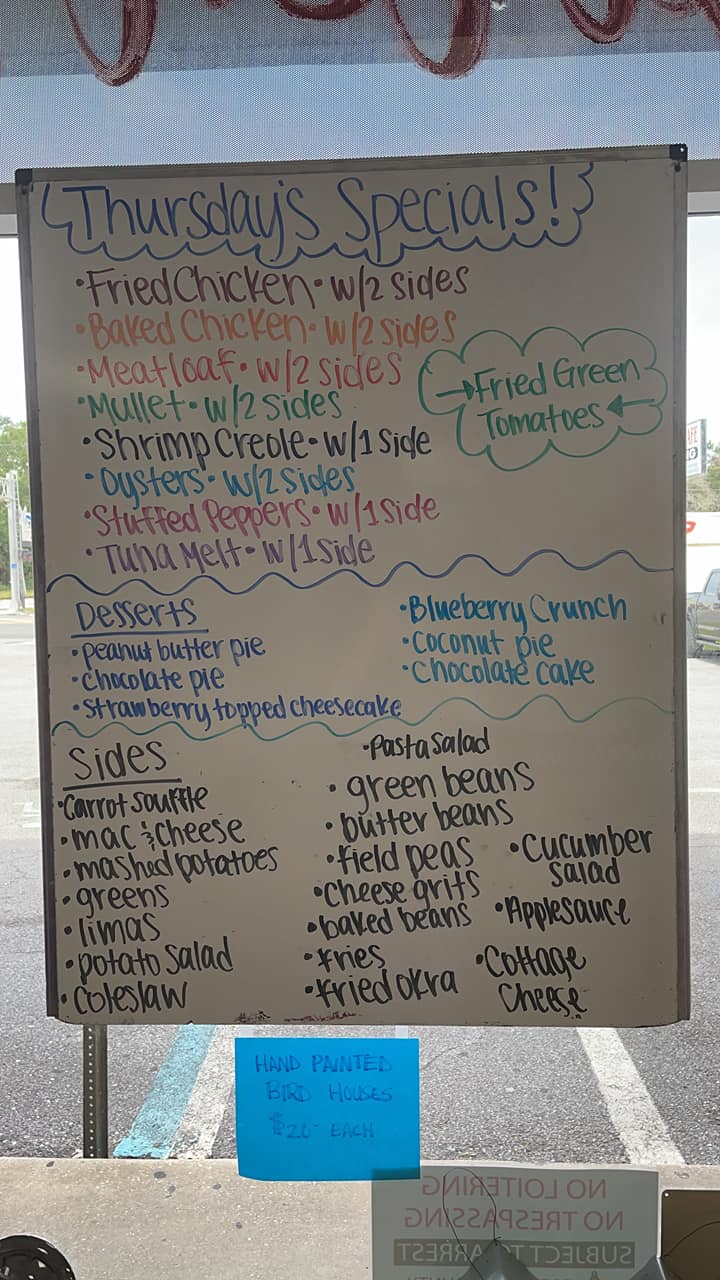 Thursday's Specials!
•Fried Chicken• w/2 sides
•Baked Chicken• w/2 sides
•Meatloaf• w/2 sides
•Mullet• w/2 sides
•Shrimp Creole• w/1 side
•Oysters• w/2 sides
•Stuffed Peppers• w/1 side
•Tuna Melt• w/1 side
→Fried Green
Tomatoes←
Desserts
•peanut butter pie
•chocolate pie
•strawberry topped cheesecake
•Blueberry Crunch
•Coconut pie
•Chocolate cake
Sides
•Carrot souffle
•mac & cheese
•mashed potatoes
•greens
•limas
•potato salad
•coleslaw
•Pasta salad
•green beans
•butter beans
•field peas
•cheese grits
•baked beans
•fries
•fried okra
•Cucumber
salad
•Applesauce
•Cottage
Cheese
HAND PAINTED
BIRD HOUSES
EACH
NO LOITERING
NO TRESPASSING
SUBJECT TO ARREST